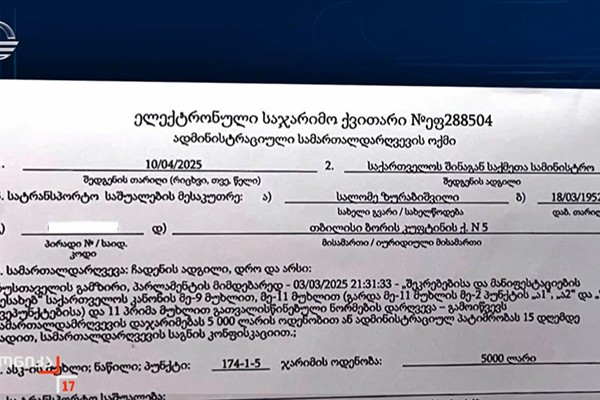 ელექტრონული საჯარიმო ქვითარი №ეფ288504
ადმინისტრაციული სამართალდარღვევის ოქმი
10/04/2025 2. საქართველოს შინაგან საქმეთა სამინისტრო
შედგენის თარიღი (რიცხვი, თვე, წელი) შედგენის ადგილი
სატრანსპორტო საშუალების მესაკუთრე: ა) სალომე ზურაბიშვილი ბ) 18/03/1952
სახელი გვარი / სახელწოდება დაბ. თარიღ
დ) თბილისი ბორის კუფტინის ქ. N 5
პირადი № / საიდ. მისამართი / იურიდიული მისამართი
კოდი
. სამართალდარღვევა: ჩადენის ადგილი, დრო და არსი:
უსთაველის გამზირი, პარლამენტის მიმდებარედ - 03/03/2025 21:31:33 - „შეკრებებისა და მანიფესტაციების
ესახებ" საქართველოს კანონის მე-9 მუხლით, მე-11 მუხლით (გარდა მე-11 მუხლის მე-2 პუნქტის „ა1", „ა2" და
ვეპუნქტებისა) და 11 პრიმა მუხლით გათვალისწინებული ნორმების დარღვევა – გამოიწვევს
ამართალდამრღვევის დაჯარიმებას 5 000 ლარის ოდენობით ან ადმინისტრაციულ პატიმრობას 15 დღემდე
ადით, სამართალდარღვევის საგნის კონფისკაციით.;
. ასკ-ის მუხლი; ნაწილი; პუნქტი: 174-1-5 ჯარიმის ოდენობა: 5000 ლარი
17
სატრანსპორტო საშუალება: